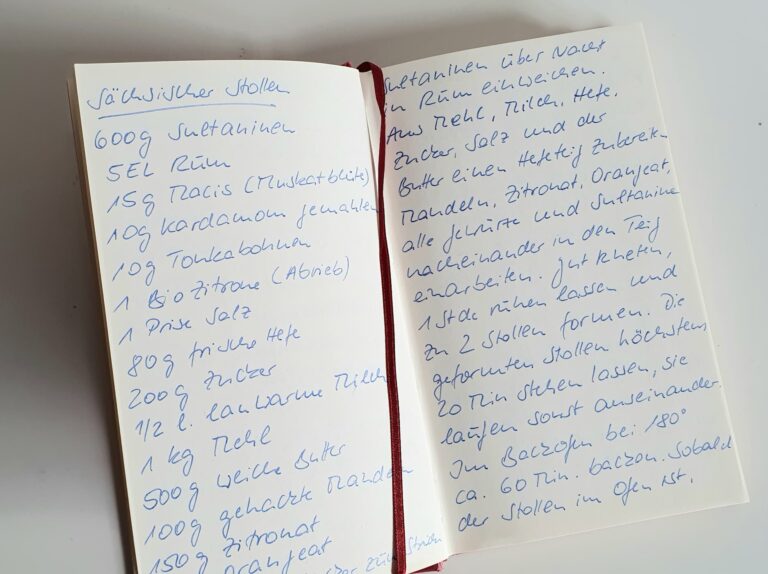 Sächsischer Stollen
600g Sultaninen
5EL Rum
15g Macis (Muskatblüte)
10g Kardamom gemahlen
10g Tonkabohnen
1 Bio Zitrone (Abrieb)
1 Prise Salz
80g frische Hefe
200g Zucker
1/2 l. lauwarme Milch
1 kg Mehl
500g weiche Butter
100g gehackte Mandeln
150g Zitronat
Orangeat
zum
Sultaninen über Nacht
in Rum einweichen.
Aus Mehl, Milch, Hefe,
Zucker, Salz und der
Butter einen Hefeteig zubereiten
Mandeln, Zitronat, Orangeat,
alle Gewürze und Sultanine
nacheinander in den Teig
einarbeiten. Gut kneten,
1 Stde ruhen lassen und
zu 2 Stollen formen. Die
geformten Stollen höchstens
20 Min stehen lassen, sie
laufen sonst auseinander.
Im Backofen bei 180°
ca. 60 Min. backen. Sobald
der Stollen im Ofen ist,